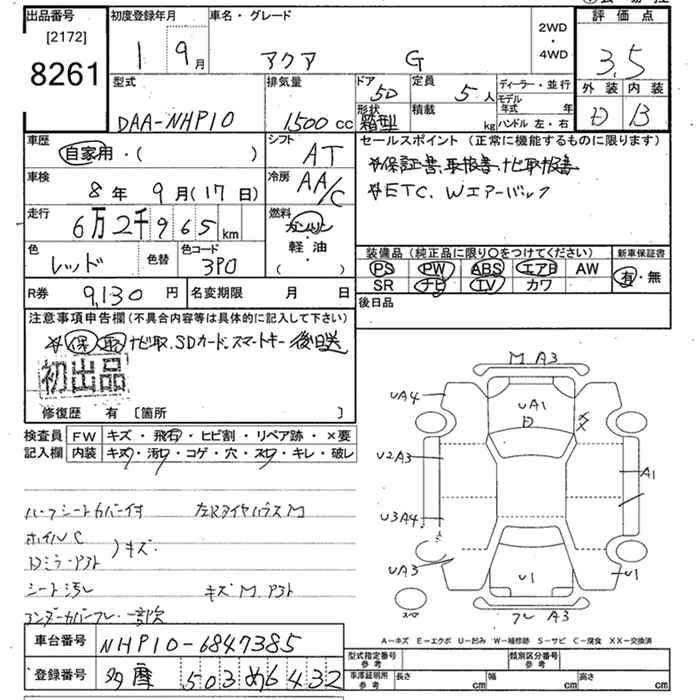 出品番号 初度登録年月 車名・グレード 2WD・4WD 評価点
[2172]
8261
1 9月 アクア G 3.5
外装 内装
D B
型式 排気量 ドア 定員 ディーラー・並行
DAA-NHP10 1500cc 5D 5人
形状 積載 モデル年式 年
箱型 kg ハンドル 左・右
車歴 シフト セールスポイント (正常に機能するものに限ります)
自家用・( ) AT
☆保証書、取扱書、ナビ取扱書
☆ETC、Wエアーバック
車検 冷房
8年 9月(17日) AA/C
走行 燃料
6万2千965km ガソリン・軽油( )
色 色替 色コード
レッド 3P0
装備品(純正品に限り○をつけてください) 新車保証書
PS PW ABS エアB AW 有・無
SR ナビ TV カワ
R券 9,130円 名変期限 月 日 後日品
注意事項申告欄(不具合内容等は具体的に記入して下さい)
☆保 取 ナビ取、SDカード、スマートキー 後日送
初出品
修復歴 有 〔箇所 〕
検査員記入欄 FW キズ・飛石・ヒビ割・リペア跡・×要
内装 キズ・汚れ・コゲ・穴・スレ・キレ・破レ
ハーフシートカバー付 左Rタイヤハウス M
ホイルC
Dミラーアト )キズ
シート汚レ キズ M、アト
アンダーカバーフレ 一部欠
M A3
UA4
UA1
D
U2A3
A1
U3A4
UA3
U1
U1
フレ A3
A-キズ E-エクボ U-凹み W-補修跡 S-サビ C-腐食 XX-交換済
車台番号 NHP10-6847385
登録番号 多摩 503 め 6432
型式指定番号 参考 類別区分番号 参考
車庫証明用 参考 長さ cm 幅 cm 高さ cm